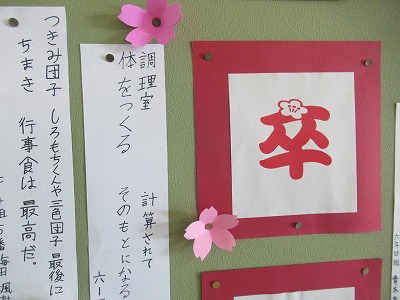 卒
調理室　計算されて
体をつくる　そのもとになる
つきみ団子　しろもちくんや三色団子　最後に
ちまき　行事食は　最高だ。